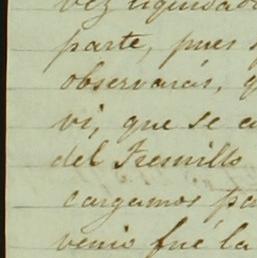 vez liquidado
parte, pues
observarás,
vi, que se
del Fresnillo
cargamos pa
venio fué la